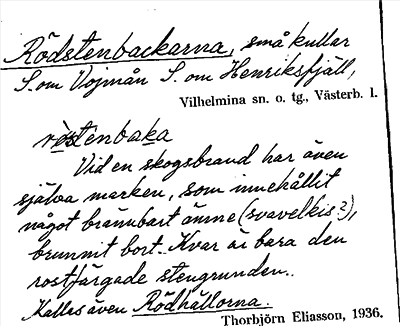 Rödstenbackarna, små kullar
S. om Vojmån S. om Henriksfjäll,
Vilhelmina sn. o. tg., Västerb. l.
röstenbaka
Vid en skogsbrand har även
själva marken, som innehållit
något brännbart ämne (svavelkis?),
brunnit bort. Kvar är bara den
rostfärgade stengrunden.
Kallas även Rödhällorna.
Thorbjörn Eliasson, 1936.